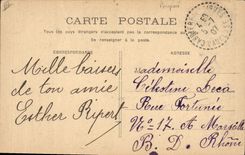 CARTE POSTALE
Tous les pays étrangers n'acceptent pas la correspondance au
Se renseigner à la poste.
CORRESPONDANCE
Mille baisers
de ton amie
Esther Ripert
Mademoiselle
Célestine Leca
Rue Fortunée
N° 17. Marseille
B. D. Rhône